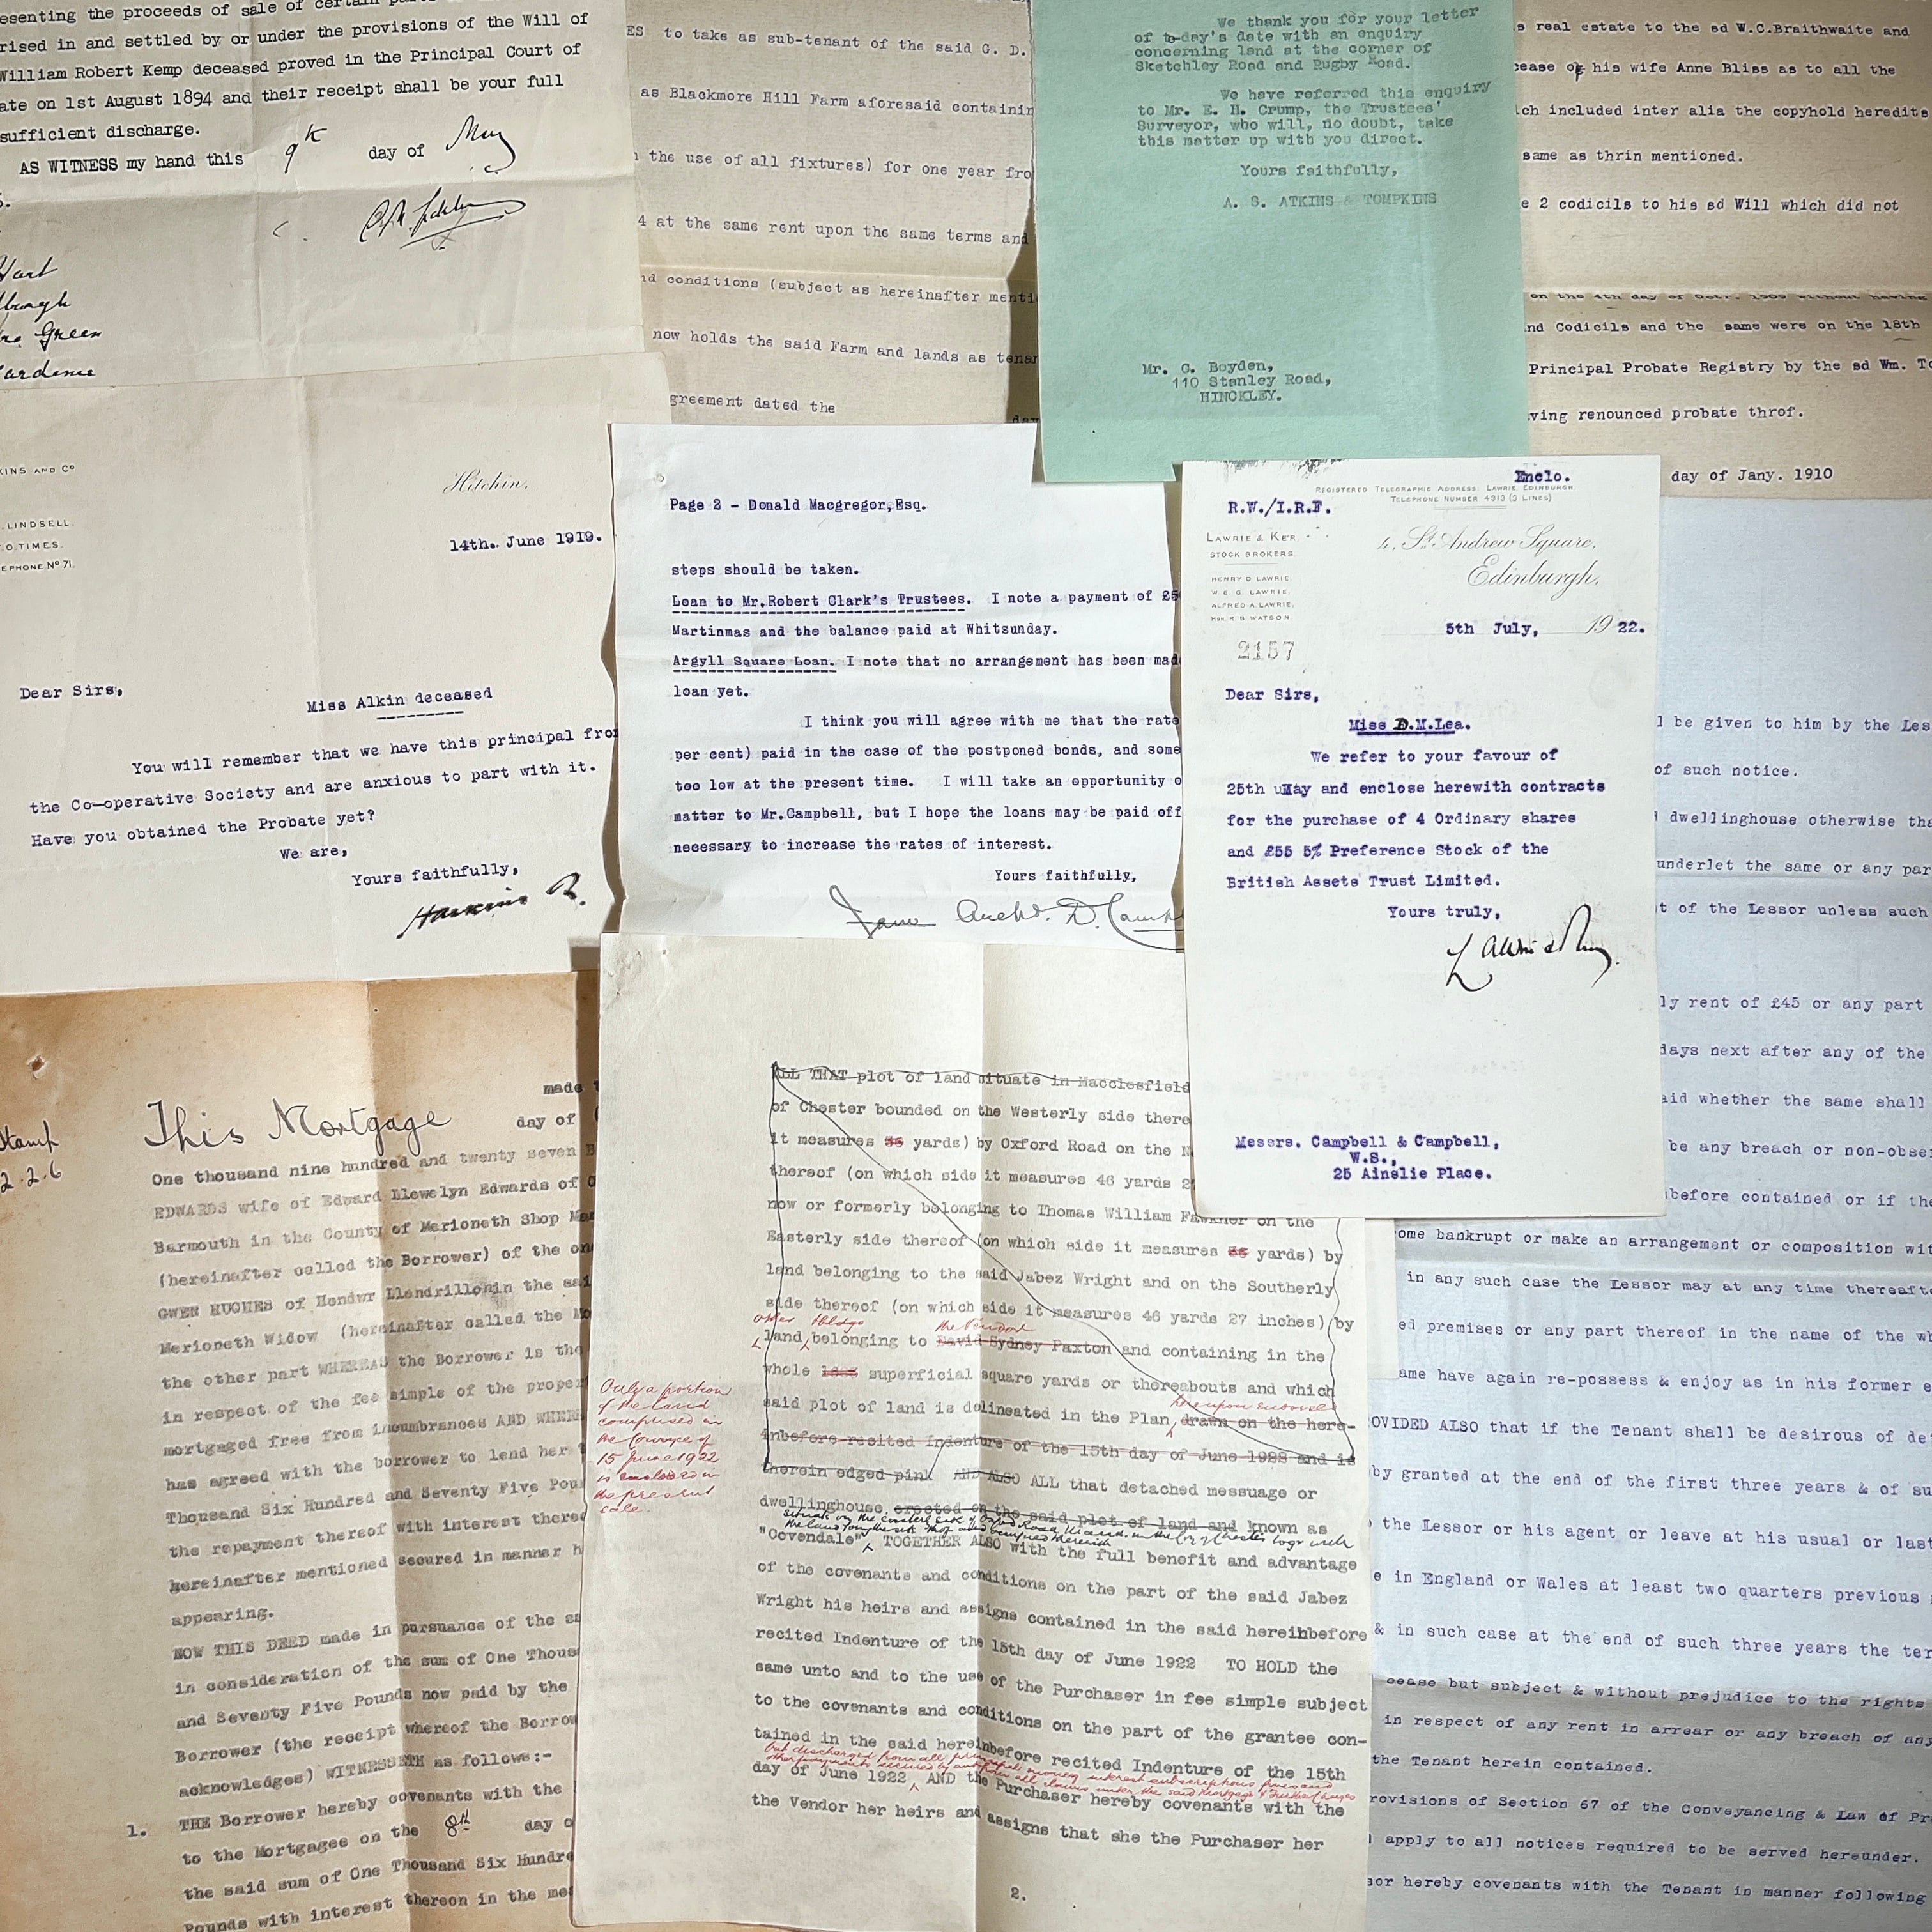 esenting the proceeds of sale of certain
rised in and settled by or under the provisions of the Will of
William Robert Kemp deceased proved in the Principal Court of
ate on 1st August 1894 and their receipt shall be your full
sufficient discharge.
AS WITNESS my hand this 9th day of May
Hart
Green
ES to take as sub-tenant of the said G. D.
as Blackmore Hill Farm aforesaid containin
the use of all fixtures) for one year fro
4 at the same rent upon the same terms and
nd conditions (subject as hereinafter menti
now holds the said Farm and lands as tenan
greement dated the
We thank you for your letter
of to-day's date with an enquiry
concerning land at the corner of
Sketchley Road and Rugby Road.
We have referred this enquiry
to Mr. E. H. Crump, the Trustees'
Surveyor, who will, no doubt, take
this matter up with you direct.
Yours faithfully,
A. S. ATKINS & TOMPKINS
Mr. G. Boyden,
110 Stanley Road,
HINCKLEY.
s real estate to the sd W.C.Braithwaite and
cease of his wife Anne Bliss as to all the
ich included inter alia the copyhold heredits
same as thrin mentioned.
e 2 codicils to his sd Will which did not
on the 4th day of Octr. 1909 without having
nd Codicils and the same were on the 18th
Principal Probate Registry by the sd Wm. To
ving renounced probate throf.
day of Jany. 1910
KINS AND Co
LINDSELL.
O.TIMES.
EPHONE No 71.
Hitchin.
14th. June 1919.
Dear Sirs,
Miss Alkin deceased
You will remember that we have this principal from
the Co-operative Society and are anxious to part with it.
Have you obtained the Probate yet?
We are,
Yours faithfully,
Page 2 - Donald Macgregor,Esq.
steps should be taken.
Loan to Mr.Robert Clark's Trustees. I note a payment of £5
Martinmas and the balance paid at Whitsunday.
Argyll Square Loan. I note that no arrangement has been mad
loan yet.
I think you will agree with me that the rate
per cent) paid in the case of the postponed bonds, and some
too low at the present time. I will take an opportunity o
matter to Mr.Campbell, but I hope the loans may be paid off
necessary to increase the rates of interest.
Yours faithfully,
Enclo.
REGISTERED TELEGRAPHIC ADDRESS: LAWRIE, EDINBURGH.
TELEPHONE NUMBER 4313 (3 LINES)
R.W./I.R.F.
LAWRIE & KER.
STOCK BROKERS.
HENRY D LAWRIE.
W. E. G. LAWRIE.
ALFRED A. LAWRIE.
HON. R B WATSON
4, St. Andrew Square,
Edinburgh,
5th July, 1922.
2157
Dear Sirs,
Miss D.M.Lea.
We refer to your favour of
25th May and enclose herewith contracts
for the purchase of 4 Ordinary shares
and £55 5% Preference Stock of the
British Assets Trust Limited.
Yours truly,
Messrs. Campbell & Campbell,
W.S.,
25 Ainslie Place.
Stamp
2.2.6
made
This Mortgage day of
One thousand nine hundred and twenty seven B
EDWARDS wife of Edward Llewelyn Edwards of
Barmouth in the County of Merioneth Shop Ma
(hereinafter called the Borrower) of the on
GWEN HUGHES of Hendwr Llandrillo in the sai
Merioneth Widow (hereinafter called the Mo
the other part WHEREAS the Borrower is the
in respect of the fee simple of the proper
mortgaged free from incumbrances AND WHERE
has agreed with the borrower to lend her
Thousand Six Hundred and Seventy Five Pou
the repayment thereof with interest thereo
hereinafter mentioned secured in manner h
appearing.
NOW THIS DEED made in pursuance of the sa
in consideration of the sum of One Thous
and Seventy Five Pounds now paid by the
Borrower (the receipt whereof the Borrow
acknowledges) WITNESSETH as follows:-
1. THE Borrower hereby covenants with the
to the Mortgagee on the 8th day o
the said sum of One Thousand Six Hundre
Pounds with interest thereon in the me
ALL THAT plot of land situate in Macclesfield
of Chester bounded on the Westerly side there
it measures 36 yards) by Oxford Road on the N
thereof (on which side it measures 46 yards 2
now or formerly belonging to Thomas William Fawkner on the
Easterly side thereof (on which side it measures 36 yards) by
land belonging to the said Jabez Wright and on the Southerly
side thereof (on which side it measures 46 yards 27 inches) by
other hldgs the Vendor
land belonging to David Sydney Paxton and containing in the
whole superficial square yards or thereabouts and which
thereupon endorsed
said plot of land is delineated in the Plan drawn on the here-
inbefore recited Indenture of the 15th day of June 1922 and is
therein edged pink AND ALSO ALL that detached messuage or
dwellinghouse erected on the said plot of land and known as
"Covendale" TOGETHER ALSO with the full benefit and advantage
of the covenants and conditions on the part of the said Jabez
Wright his heirs and assigns contained in the said hereinbefore
recited Indenture of the 15th day of June 1922 TO HOLD the
same unto and to the use of the Purchaser in fee simple subject
to the covenants and conditions on the part of the grantee con-
tained in the said hereinbefore recited Indenture of the 15th
day of June 1922 AND the Purchaser hereby covenants with the
the Vendor her heirs and assigns that she the Purchaser her
2.
Only a portion
of the land
comprised in
the Conveyce of
15 June 1922
is included in
the present
sale.
l be given to him by the Les
of such notice.
dwellinghouse otherwise tha
underlet the same or any par
t of the Lessor unless such
ly rent of £45 or any part
days next after any of the
aid whether the same shall
be any breach or non-obse
before contained or if the
ome bankrupt or make an arrangement or composition wit
in any such case the Lessor may at any time thereafte
ed premises or any part thereof in the name of the wh
ame have again re-possess & enjoy as in his former e
OVIDED ALSO that if the Tenant shall be desirous of de
by granted at the end of the first three years & of su
the Lessor or his agent or leave at his usual or last
e in England or Wales at least two quarters previous
& in such case at the end of such three years the ter
cease but subject & without prejudice to the rights
in respect of any rent in arrear or any breach of any
the Tenant herein contained.
rovisions of Section 67 of the Conveyancing & Law of Pr
apply to all notices required to be served hereunder.
sor hereby covenants with the Tenant in manner following